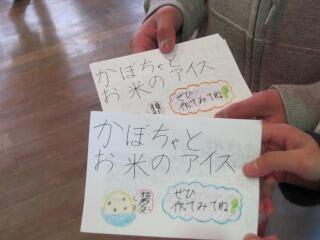 かぼちゃと
お米のアイス
ぜひ
作ってみてね
かぼちゃと
お米のアイス
ぜひ
作ってみてね